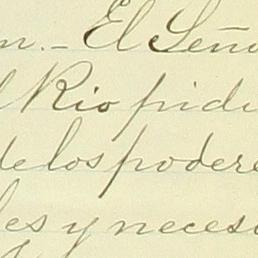 n.- El Seño
l Rio pidi
de los podere
les y neces